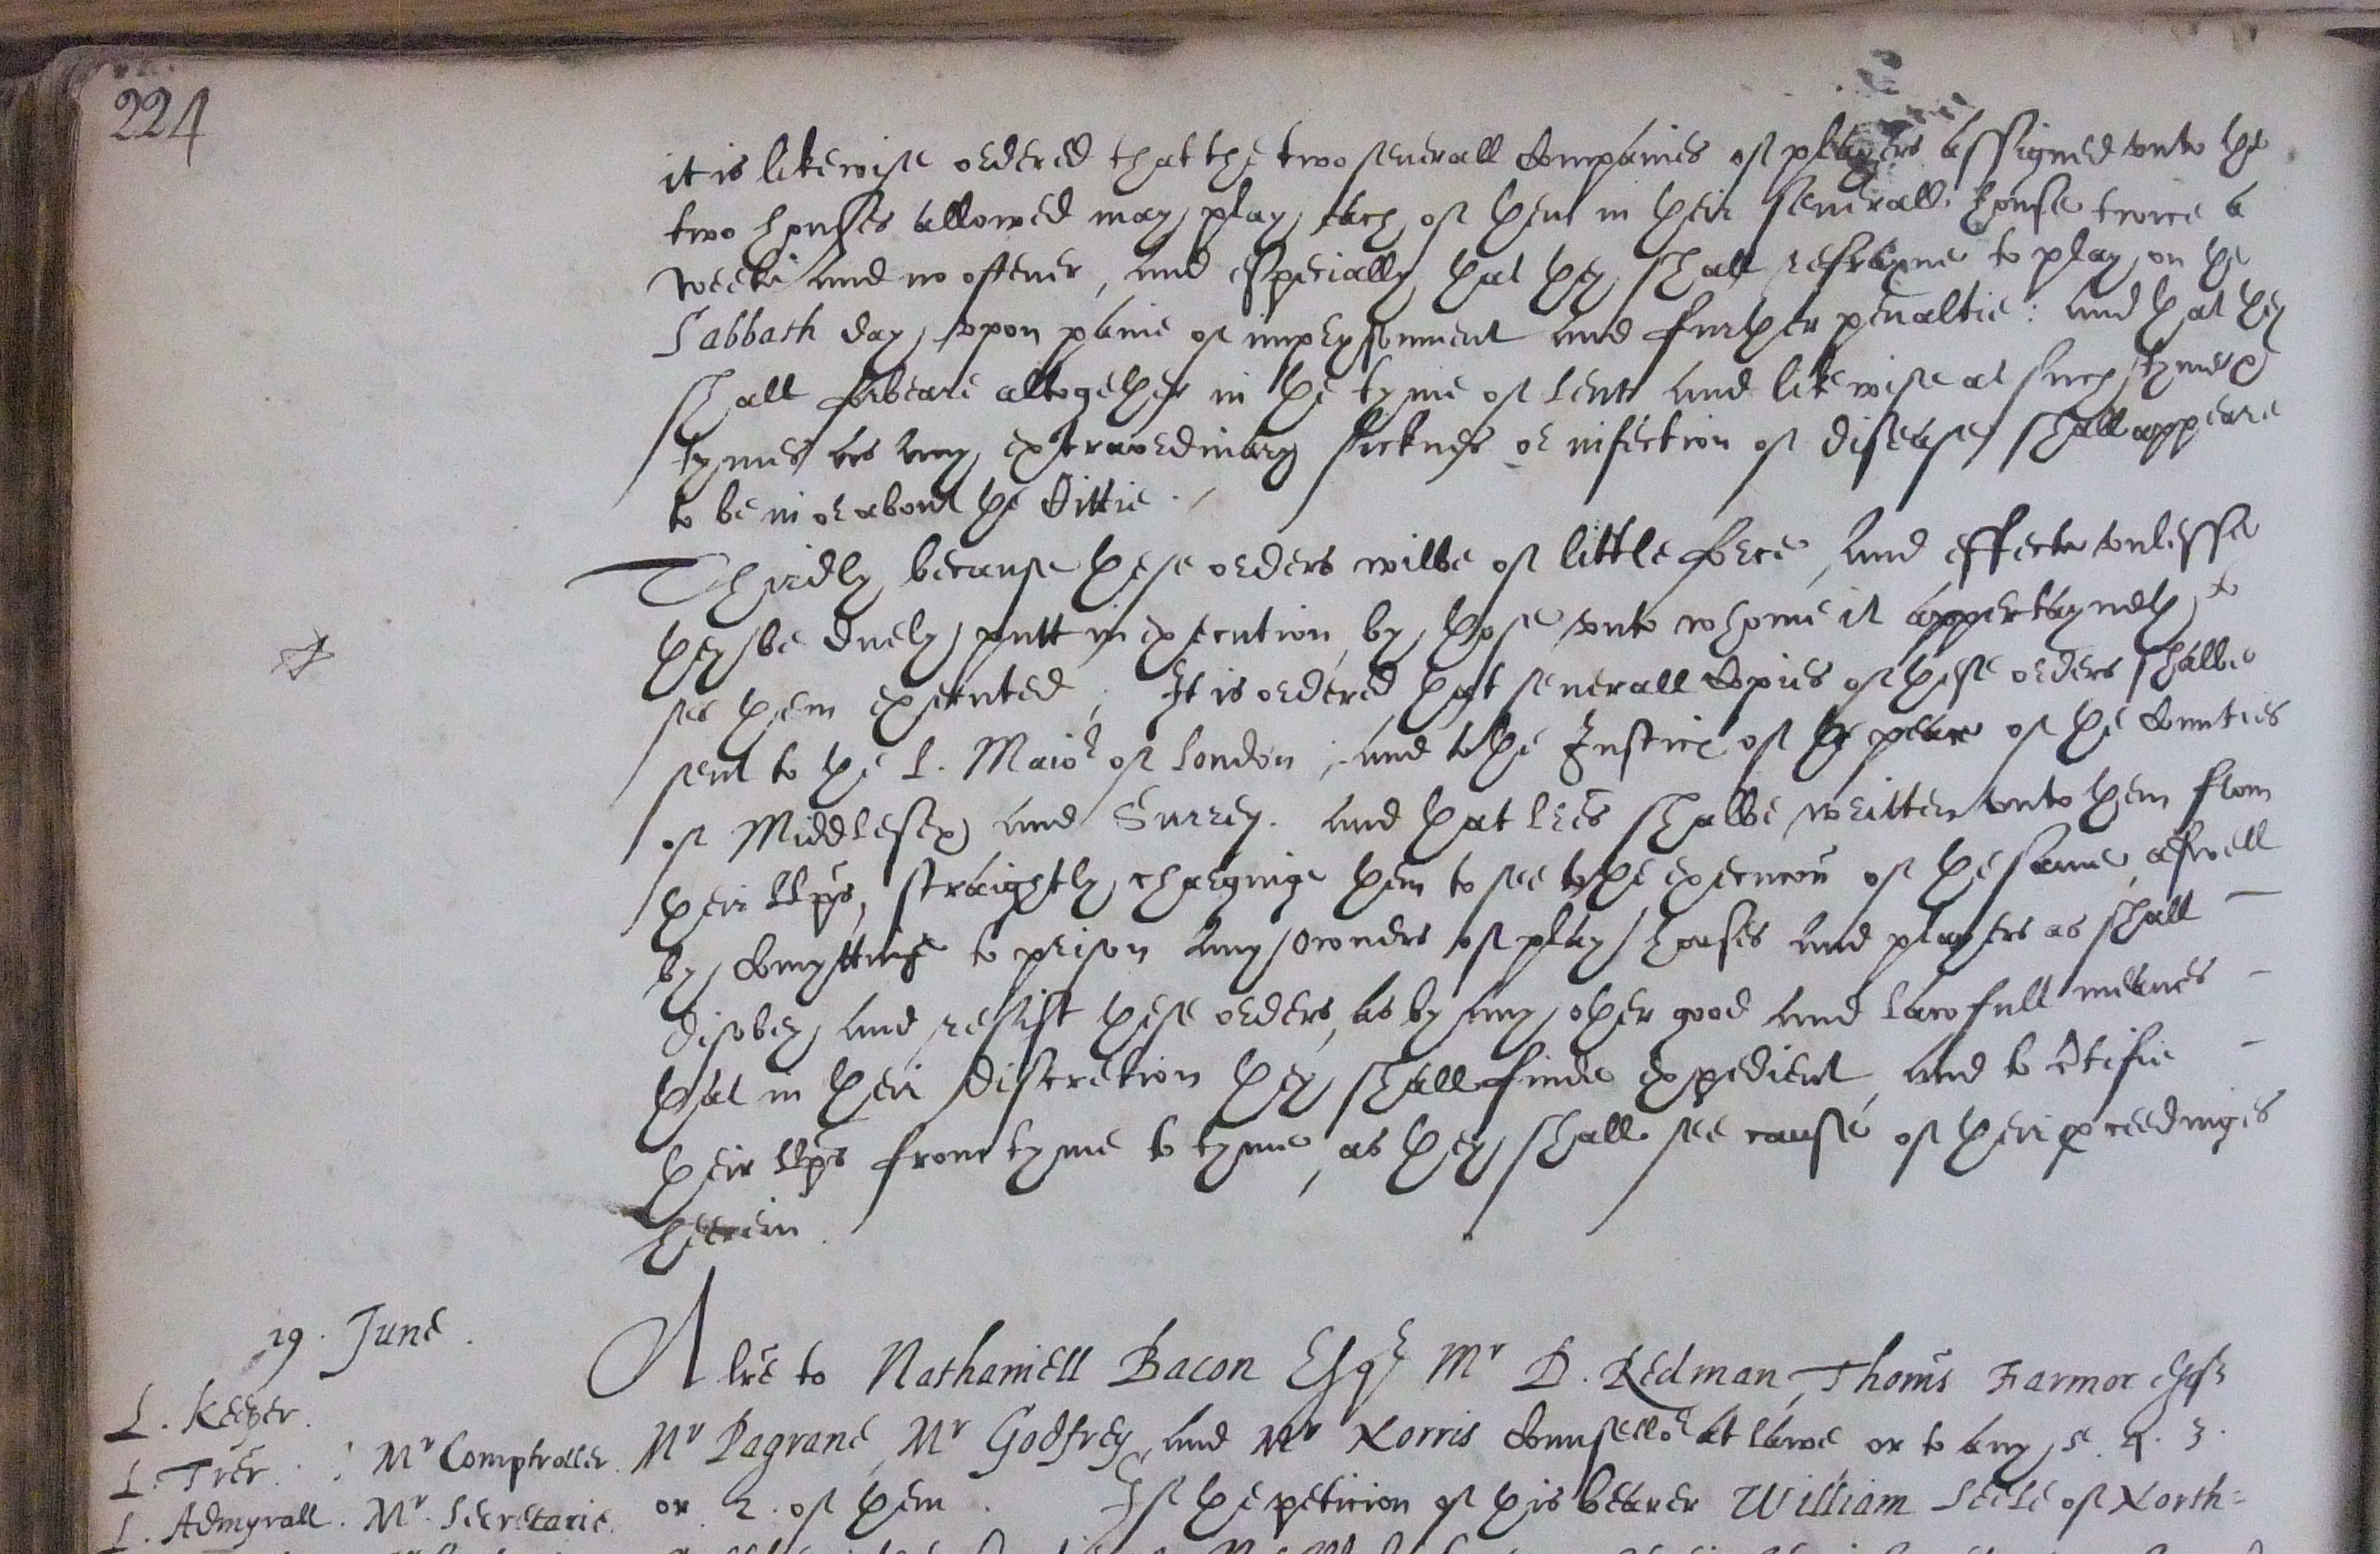 224
it is likewise ordered that the two severall Companies of players assigned vnto the
two houses allowed may play each of them in their severall house twice a
weeke and no oftener, and especially that they shall refrayne to play on the
Sabbath day, vpon paine of imprysonment and further penaltie: and that they
shall forbeare altogether in the tyme of Lent and likewise at such tyme &
tymes as any extraordinary sicknes or infection of disease shall appeare
to be in or about the Cittie.
Thirdly because these orders wilbe of little force and effecte vnlesse
they be duely putt in execution by those vnto whome it appertayneth to
see them executed; It is ordered that severall Copies of these orders shalbe
sent to the L. Maior of London, and to the Justices of the peace of the Counties
of Middlesex and Surrey. and that lres shalbe written vnto them from
their llps, straightly charginge them to see to the execucon of the same, aswell
by Comyttinge to prison any owners of play houses and players as shall
disobey and resist these orders, as by any other good and lawfull meanes
that in their discretion they shall finde expedient, and to certifie
their llps from tyme to tyme as they shall see cause of their proceedinges
heerein.
19. June.
L. Keeper.
L. Trer. : Mr Comptroller.
L. Admyrall. Mr. Secretarie.
A lre to Nathaniell Bacon Esqr Mr D. Redman, Thoms Farmor esqr
Mr Pagrane, Mr Godfrey and Mr Norris Counsellor at lawe or to any 5. 4. 3.
or 2. of them. If the peticion of this bearer William Seele of North=